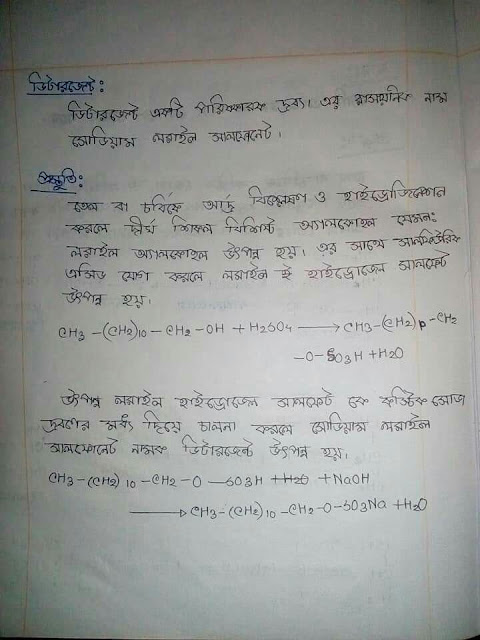 ডিটারজেন্ট:
ডিটারজেন্ট একটি পরিষ্কারক দ্রব্য। এর রাসায়নিক নাম
সোডিয়াম লরাইল সালফোনেট।
প্রস্তুতি:
তেল বা চর্বিকে আর্দ্র বিশ্লেষণ ও হাইড্রোজিনেশন
করলে দীর্ঘ শিকল বিশিষ্ট অ্যালকোহল যেমন:
লরাইল অ্যালকোহল উৎপন্ন হয়। এর সাথে সালফিউরিক
এসিড যোগ করলে লরাইল ই হাইড্রোজেন সালফেট
উৎপন্ন হয়।
CH3 -(CH2)10 - CH2 - OH + H2SO4 ⟶ CH3-(CH2)p-CH2
-O-SO3H + H2O
উৎপন্ন লরাইল হাইড্রোজেন সালফেট কে কস্টিক সোডা
দ্রবণের মধ্য দিয়ে চালনা করলে সোডিয়াম লরাইল
সালফোনেট নামক ডিটারজেন্ট উৎপন্ন হয়।
CH3 -(CH2)10 - CH2 - O - SO3H + H2O + NaOH
⟶ CH3 -(CH2)10 - CH2-O-SO3Na + H2O